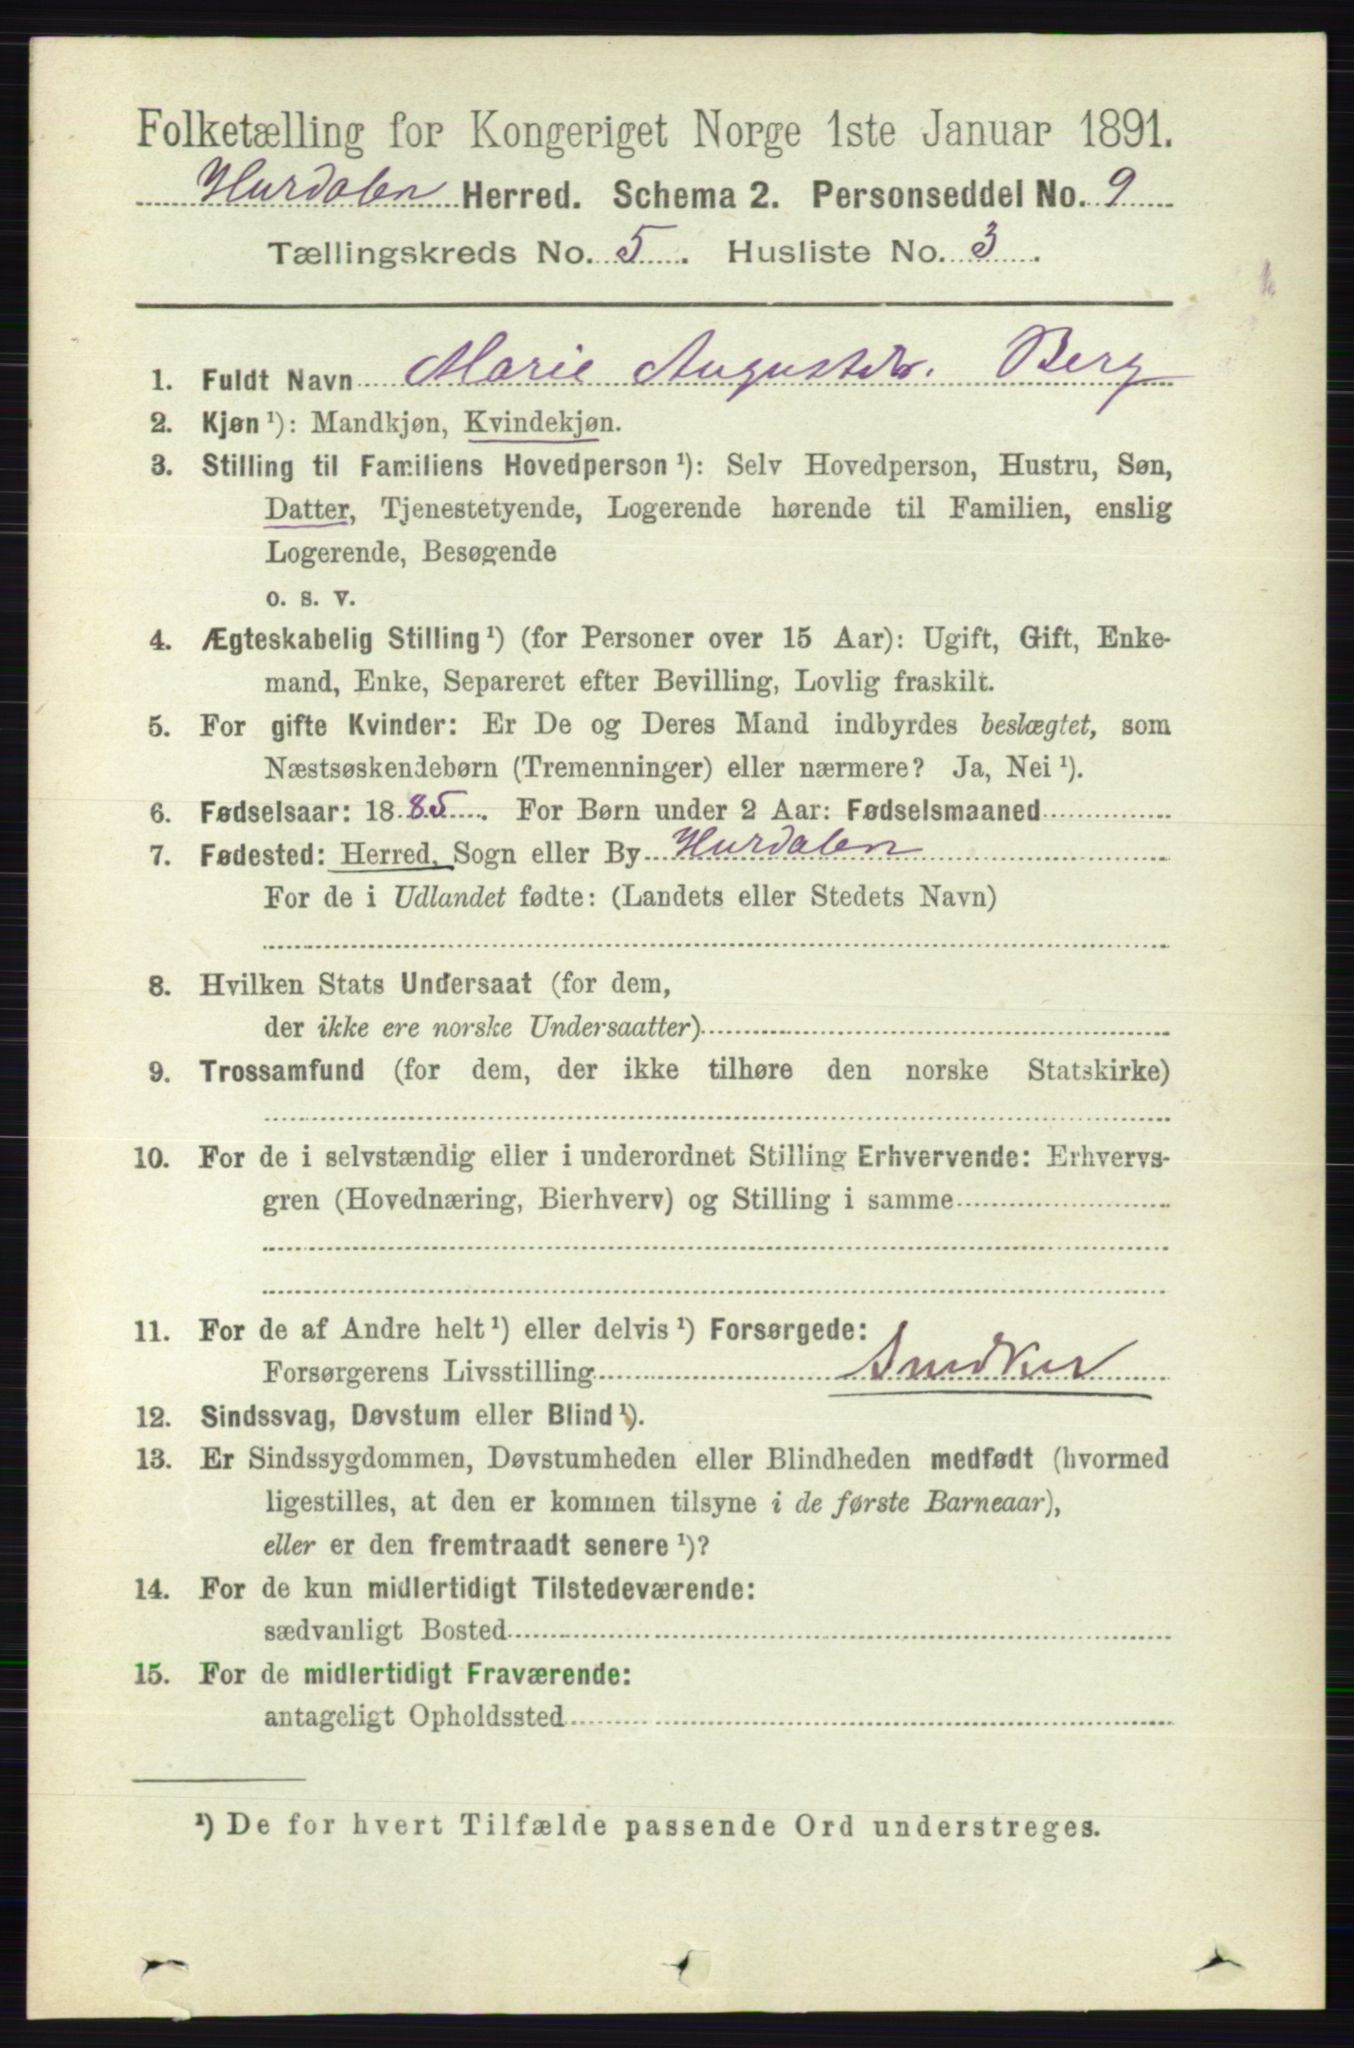 Folketælling for Kongeriget Norge 1ste Januar 1891.
Hurdalen Herred. Schema 2. Personseddel No. 9
Tællingskreds No. 5. Husliste No. 3.
1. Fuldt Navn Marie Augustdtr. Berg
2. Kjøn ¹): Mandkjøn, Kvindekjøn.
3. Stilling til Familiens Hovedperson ¹): Selv Hovedperson, Hustru, Søn,
Datter, Tjenestetyende, Logerende hørende til Familien, enslig
Logerende, Besøgende
o. s. v.
4. Ægteskabelig Stilling ¹) (for Personer over 15 Aar): Ugift, Gift, Enke-
mand, Enke, Separeret efter Bevilling, Lovlig fraskilt.
5. For gifte Kvinder: Er De og Deres Mand indbyrdes beslægtet, som
Næstsøskendebørn (Tremenninger) eller nærmere? Ja, Nei ¹).
6. Fødselsaar: 1885. For Børn under 2 Aar: Fødselsmaaned
7. Fødested: Herred, Sogn eller By Hurdalen
For de i Udlandet fødte: (Landets eller Stedets Navn)
8. Hvilken Stats Undersaat (for dem,
der ikke ere norske Undersaatter)
9. Trossamfund (for dem, der ikke tilhøre den norske Statskirke)
10. For de i selvstændig eller i underordnet Stilling Erhvervende: Erhvervs-
gren (Hovednæring, Bierhverv) og Stilling i samme
11. For de af Andre helt ¹) eller delvis ¹) Forsørgede:
Forsørgerens Livsstilling Snedker
12. Sindssvag, Døvstum eller Blind ¹).
13. Er Sindssygdommen, Døvstumheden eller Blindheden medfødt (hvormed
ligestilles, at den er kommen tilsyne i de første Barneaar),
eller er den fremtraadt senere ¹)?
14. For de kun midlertidigt Tilstedeværende:
sædvanligt Bosted
15. For de midlertidigt Fraværende:
antageligt Opholdssted
¹) De for hvert Tilfælde passende Ord understreges.